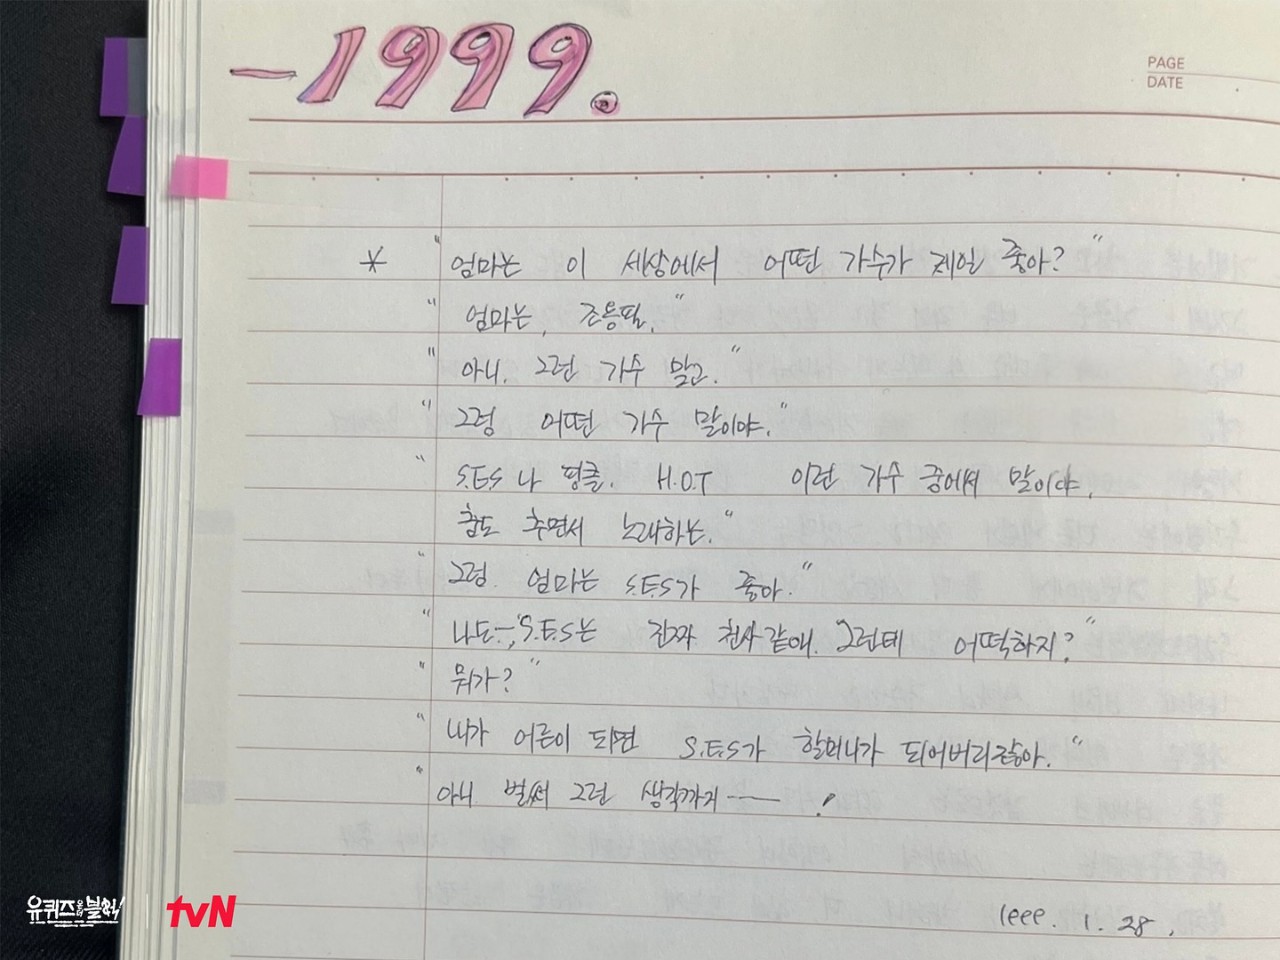 -1999.
PAGE
DATE
* "엄마는 이 세상에서 어떤 가수가 제일 좋아?"
"엄마는, 조용필."
"아니. 그런 가수 말고."
"그럼 어떤 가수 말이야."
"S.E.S 나 핑클. H.O.T 이런 가수 중에서 말이야.
춤도 추면서 노래하는."
"그럼. 엄마는 S.E.S가 좋아."
"나도-, S.E.S는 진짜 천사같애. 그런데 어떡하지?"
"뭐가?"
"내가 어른이 되면 S.E.S가 할머니가 되어버리잖아."
"아니 벌써 그런 생각까지 — !
1999. 1. 28.
유퀴즈 온 더 블럭
tvN